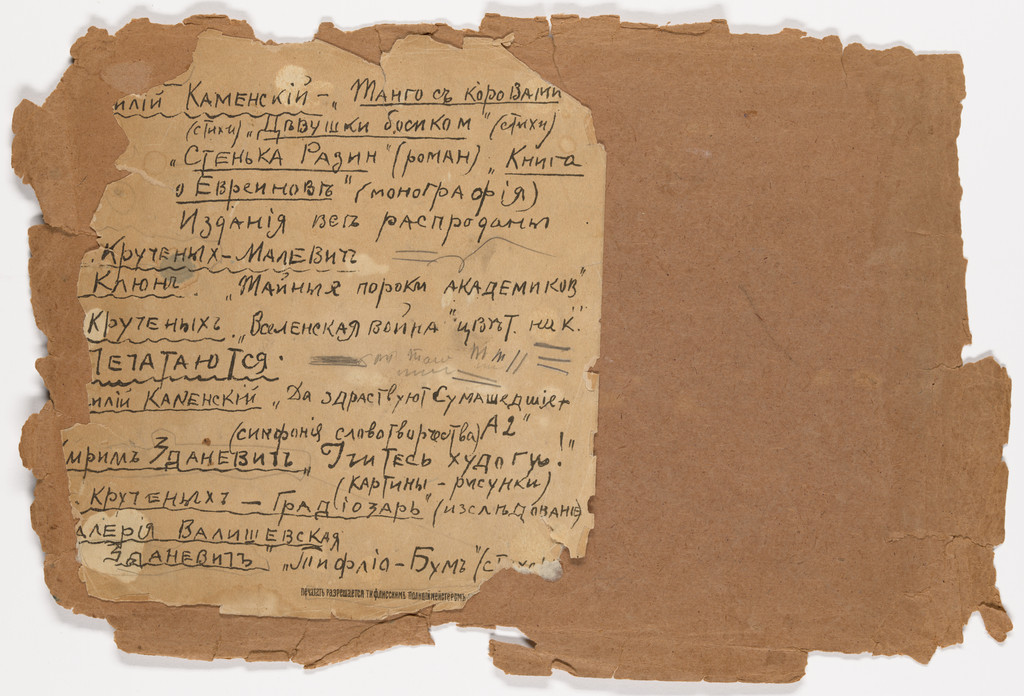 илій Каменскій – „Танго съ коровами
(стихи) „Дѣвушки босиком" (стихи)
„Стенька Разин" (роман) „Книга
о Евреиновѣ" (монографія)
Изданія всѣ распроданы
Крученых – Малевичъ
Клюнъ. „Тайныя пороки академиков"
Крученыхъ. „Вселенская война" цвѣт. на к.
Печатаются.
илій Каменскій „Да здраствуют Сумашедшіе
(симфонія словотворчества) А2"
Зданевичъ „Учитесь худоги!"
(картины – рисунки)
Крученыхъ – Градіозарь" (изслѣдование)
алерія Валишевская
Зданевичъ „Тифліс – Бумъ"
печатать разрешается тифлисским полицмейстером